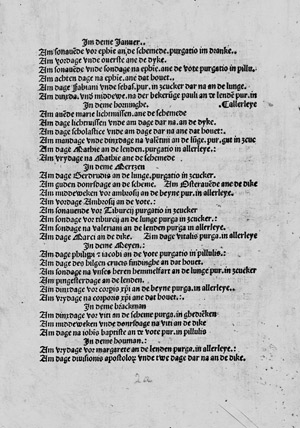 Jm deme Januer..
Am sonauēde vor ephie an de schemede. purgatio im dranke..
Am vordage vnde ouerste ane de dyke.
Am sonauēde vñde sondage na ephie. ane de vote purgatio in pillu.
Am achten dage na ephie. ane dat bouet..
Am dage Fabiani vnde sebas. pur. in zeucker dar na an de lunge.
Am dinxda. vñs middewe. na der bekerūge pauli an tr lendē pur. in
Jn deme hornīnghe. .Lallerleye
Am auēde marie lichtmissen. ane de schemede
Am dage lichtmissen vnde am dage dar na. an de dyke.
Am dage scholastice vnde am dage dar na ane dat bouet:.
Am mandage vnde dinxdage na valētini an de lūge. pur. gut in zeuc
Am dage Mathie an de lenden. purgatio in allerleye.:
Am vrydage na Mathie ane de schemede
Jn deme Mertzen
Am dage Gerdrudis an de lunge. purgatio in zeucker.
Am guden donrsdage an de scheme. Am Osterauēde ane de dike
Am middeweken vor ambrosij an de beyne pur. in allerleye
Am vridage Ambrosij an de vote.:
Am sonauende vor Tiburcij purgatio in zeucker
Am sondage vor tiburcij an de lunge purga in zeucker.:
Am sondage na valeriani an de lenden purga. in allerleye
Am dage Marci an de dike. Am dage vitalis purga. in allerleye
Jn deme Meyen.:
Am dage philippi z iacobi an de vote purgatio in pillulis.:
Am dage des hilgen cruces findinghe an dat bouet.
Am sondage na vnses heren hemmelfart an de lunge pur. in zeucker
Am pingesterdage an de lenden.
Am dinxdage vor corpis xpi an de beyne purga. in allerleye..
Am vrydage na corporis xpi ane dat bouet.:.
Jn deme brackman
Am dinxdage vor viti an de scheme purga. in ghedrēken
Am middeweken vnde donrsdage na viti an de dike
Am dage na iohis baptiste an de vote pur. in pillulis
Jn deme houman.:
Am vrydage vor margarete an de lenden purga. in allerleye.:
Am dage diuisionis apostolor vnde twe dage dar na an de dike.